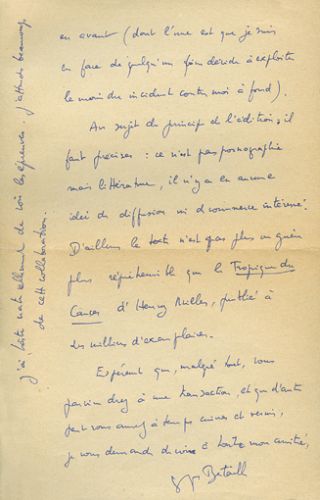 en avant (dont l'une est que je suis
en face de quelqu'un bien décidé à exploiter
le moindre incident contre moi à fond).
Au sujet du principe de l'édition, il
faut préciser : ce n'est pas pornographie
mais littérature, il n'y a en aucune
idée de diffusion ni de commerce intéressé.
D'ailleurs le texte n'est pas plus ou guère
plus répréhensible que le Tropique du
Cancer d'Henry Miller, publié à
des millions d'exemplaires.
Espérant que, malgré tout, vous
parviendrez à une transaction, et que d'autre
part vous aurez à temps cuivres et vernis,
je vous demande de croire à toute mon amitié,
Bataille
J'ai hâte naturellement de voir les épreuves. J'attends beaucoup
de cette collaboration.